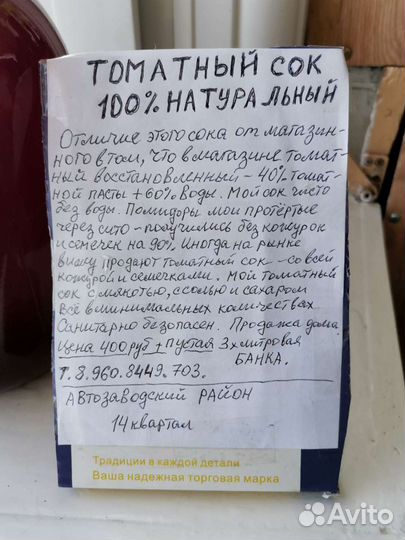 ТОМАТНЫЙ СОК
100% НАТУРАЛЬНЫЙ
Отличие этого сока от магазин-
ного в том, что в магазине томат-
ный восстановленный - 40% томат-
ной пасты + 60% воды. Мой сок чисто
без воды. Помидоры мои протёртые
через сито - получились без кожурок
и семечек на 90%. Иногда на рынке
вижу продают томатный сок - со всей
кожурой и семечками. Мой томатный
сок с мякотью, с солью и сахаром
Всё в минимальных количествах.
Санитарно безопасен. Продажа дома
Цена 400 руб + пустая 3х литровая
БАНКА.
т. 8.960.8449.703.
АВТОЗАВОДСКИЙ РАЙОН
14 квартал
Традиции в каждой детали
Ваша надежная торговая марка
Avito